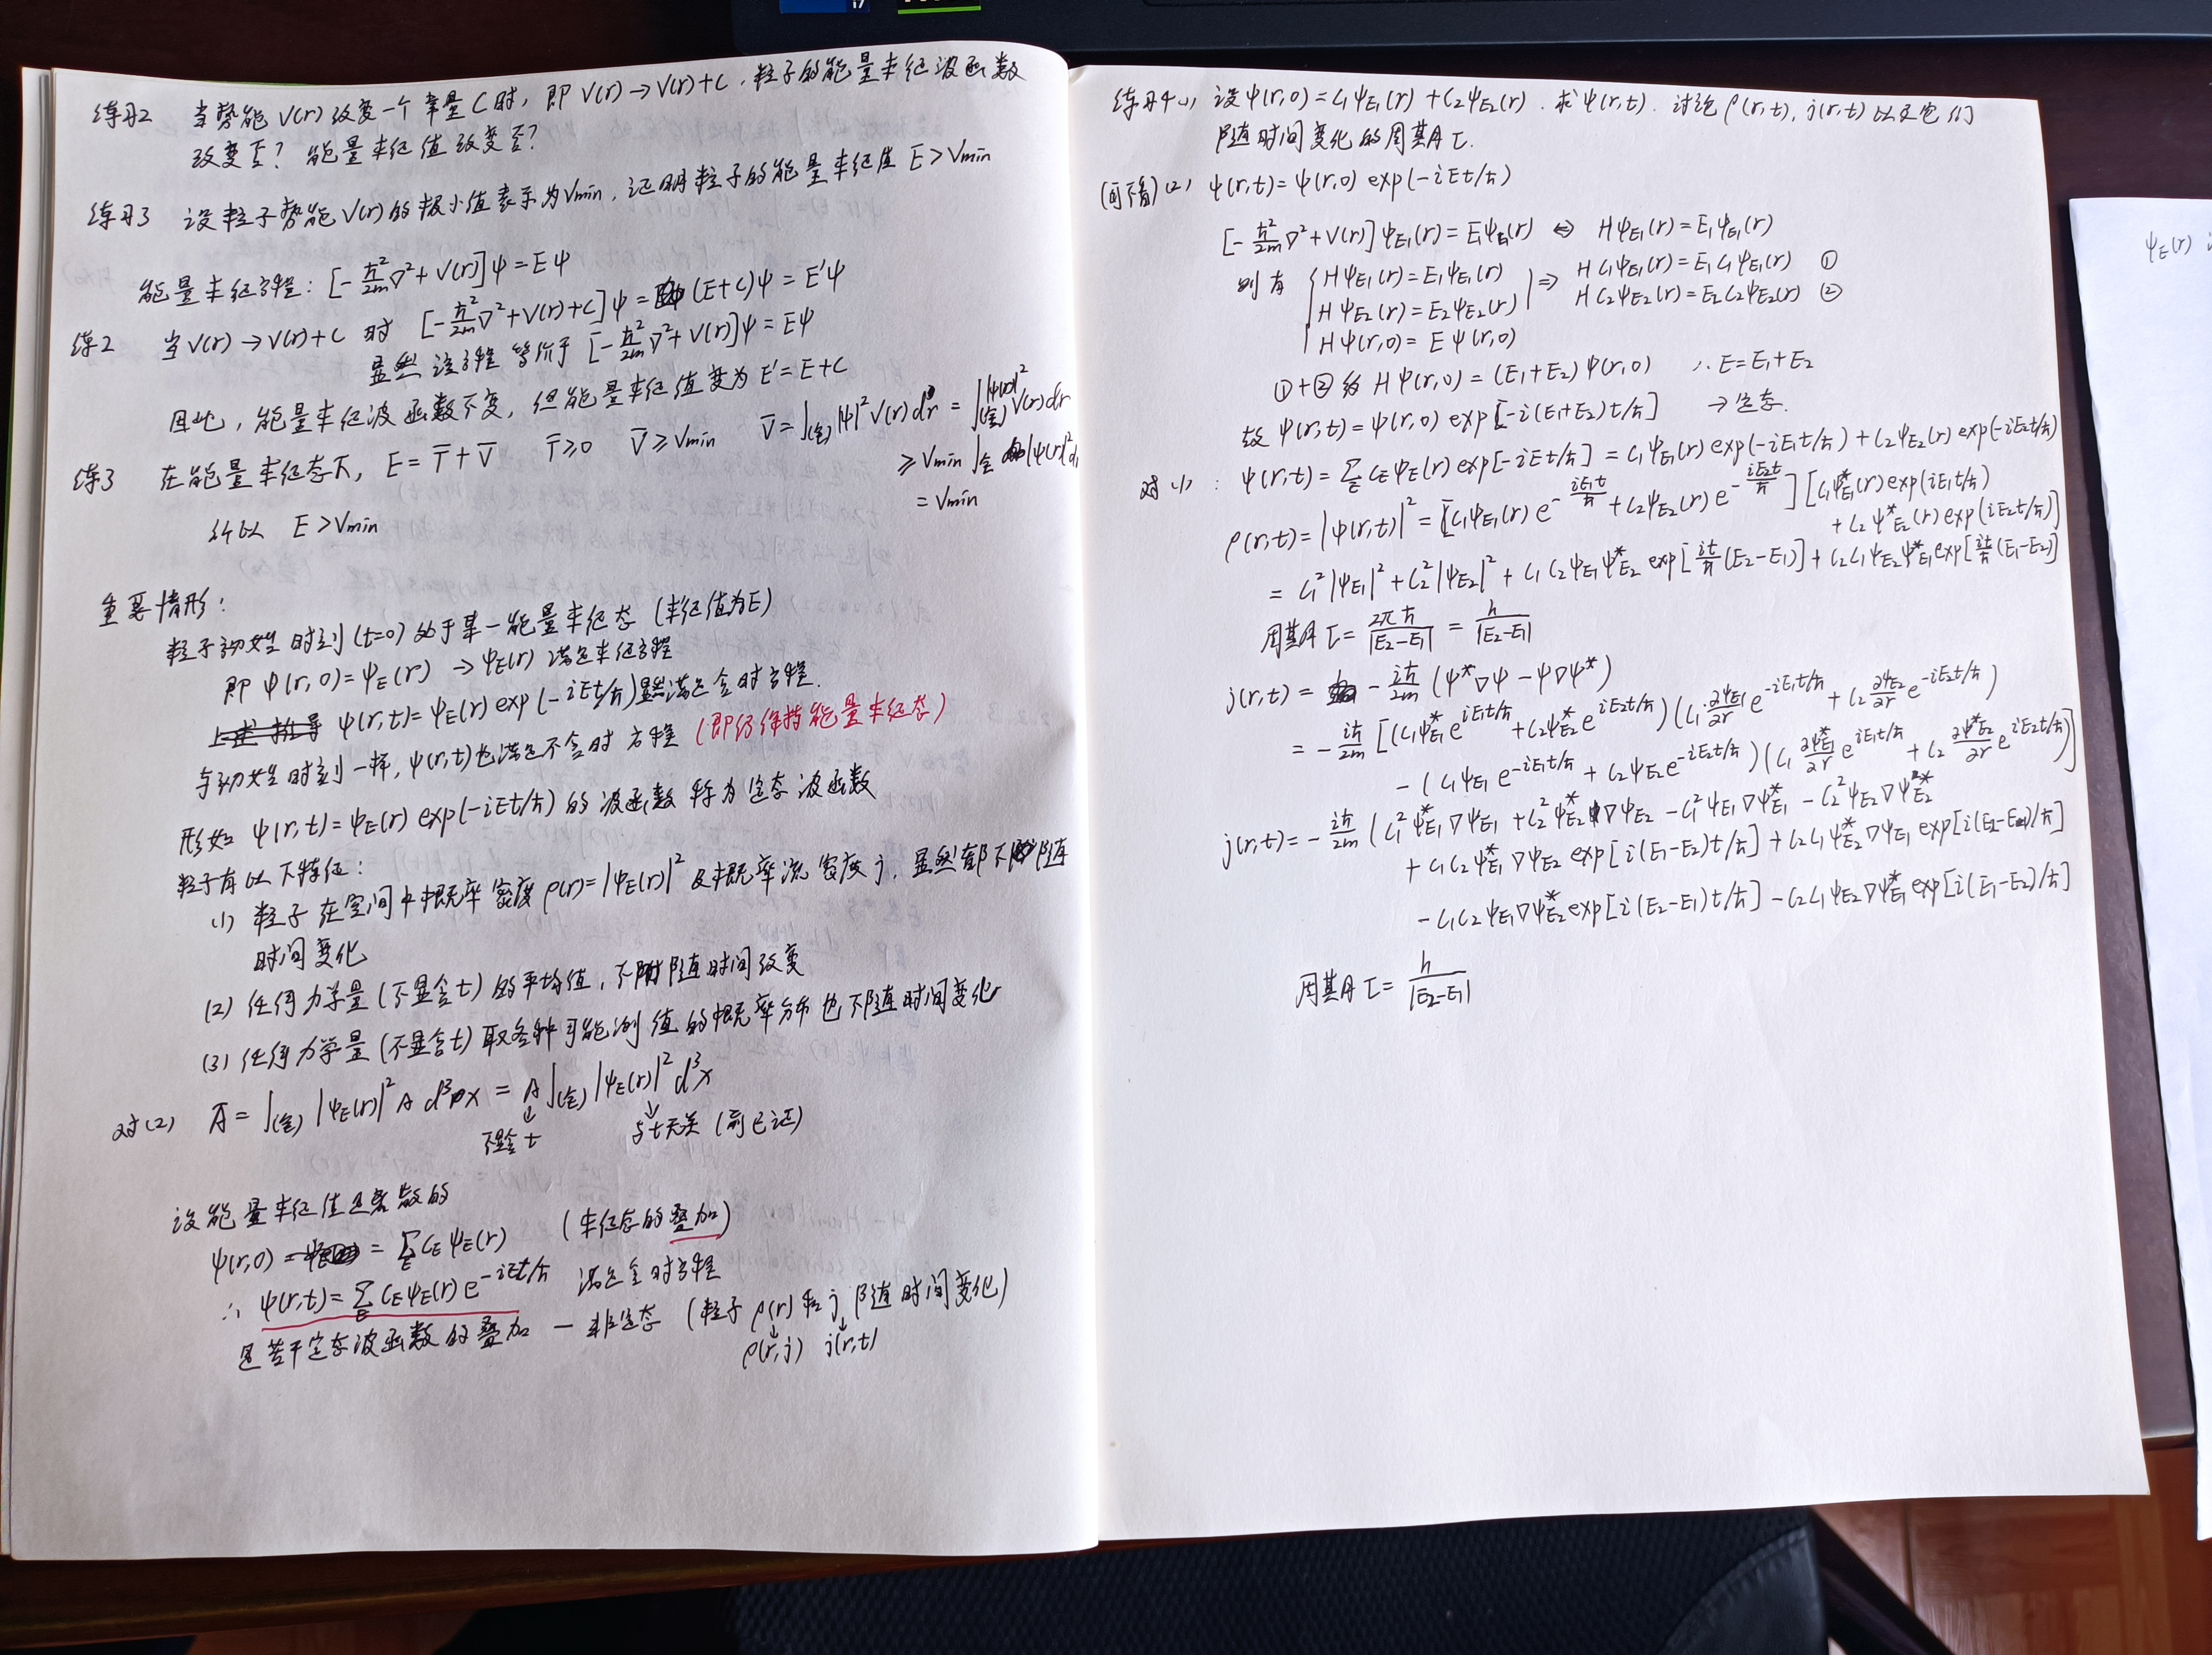 练习2 当势能 V(r) 改变一个常量 C 时, 即 V(r)→V(r)+C, 粒子的能量本征波函数
改变否? 能量本征值改变否?
练习3 设粒子势能 V(r) 的极小值表示为 Vmin, 证明粒子的能量本征值 E>Vmin
能量本征方程: [-ℏ²/2m ∇²+V(r)]ψ=Eψ
练2 当V(r)→V(r)+C 时 [-ℏ²/2m ∇²+V(r)+C]ψ=(E+C)ψ=E'ψ
显然该方程等价于 [-ℏ²/2m ∇²+V(r)]ψ=Eψ
因此, 能量本征波函数不变, 但能量本征值变为 E'=E+C
练3 在能量本征态下, E=T̄+V̄ T̄≥0 V̄≥Vmin V̄=∫(全)|ψ|²V(r)d³r=∫(全)|ψ(r)|²V(r)dr
≥Vmin∫全|ψ(r)|²d
=Vmin
所以 E>Vmin
重要情形:
粒子初始时刻(t=0)处于某一能量本征态 (本征值为E)
即 ψ(r,0)=ψE(r) →ψE(r) 满足本征方程
ψ(r,t)=ψE(r)exp(-iEt/ℏ)显然满足含时方程.
与初始时刻一样, ψ(r,t)也满足不含时方程 (即仍保持能量本征态)
形如 ψ(r,t)=ψE(r)exp(-iEt/ℏ) 的波函数称为定态波函数
粒子有以下特征:
(1) 粒子在空间中概率密度 ρ(r)=|ψE(r)|² 及概率流密度 j, 显然都不随
时间变化
(2) 任何力学量 (不显含t) 的平均值, 不随时间改变
(3) 任何力学量 (不显含t) 取各种可能测值的概率分布也不随时间变化
对(2) Ā=∫(全)|ψE(r)|²A d³x = A∫(全)|ψE(r)|²d³x
不显含t 与t无关 (前已证)
设能量本征值是离散的
ψ(r,0) = ΣE CEψE(r) (本征态的叠加)
∴ ψ(r,t)=ΣE CEψE(r)e^{-iEt/ℏ} 满足含时方程
是若干定态波函数的叠加 — 非定态 (粒子ρ(r)和j随时间变化)
ρ(r,j) j(r,t)
练习4 (1) 设ψ(r,0)=C1ψE1(r)+C2ψE2(r). 求ψ(r,t). 讨论ρ(r,t), j(r,t)以及它们
随时间变化的周期τ.
(可不看)(2) ψ(r,t)=ψ(r,0)exp(-iEt/ℏ)
[-ℏ²/2m ∇²+V(r)]ψE1(r)=E1ψE1(r) ⇔ HψE1(r)=E1ψE1(r)
则有 { HψE1(r)=E1ψE1(r) ⇒ HC1ψE1(r)=E1C1ψE1(r) ①
HψE2(r)=E2ψE2(r) HC2ψE2(r)=E2C2ψE2(r) ②
Hψ(r,0)=Eψ(r,0)
①+②给 Hψ(r,0)=(E1+E2)ψ(r,0) ∴E=E1+E2
故 ψ(r,t)=ψ(r,0)exp[-i(E1+E2)t/ℏ] →定态.
对(1): ψ(r,t)=ΣE CEψE(r)exp[-iEt/ℏ]=C1ψE1(r)exp(-iE1t/ℏ)+C2ψE2(r)exp(-iE2t/ℏ)
ρ(r,t)=|ψ(r,t)|²=[C1ψE1(r)e^{-iE1t/ℏ}+C2ψE2(r)e^{-iE2t/ℏ}][C1ψ*E1(r)exp(iE1t/ℏ)
+C2ψ*E2(r)exp(iE2t/ℏ)]
=C1²|ψE1|²+C2²|ψE2|²+C1C2ψE1ψ*E2 exp[it/ℏ(E2-E1)]+C2C1ψE2ψ*E1exp[it/ℏ(E1-E2)]
周期τ=2πℏ/|E2-E1|=h/|E2-E1|
j(r,t)=-iℏ/2m(ψ*∇ψ-ψ∇ψ*)
=-iℏ/2m[(C1ψ*E1e^{iE1t/ℏ}+C2ψ*E2e^{iE2t/ℏ})(C1∂ψE1/∂r e^{-iE1t/ℏ}+C2∂ψE2/∂r e^{-iE2t/ℏ})
-(C1ψE1e^{-iE1t/ℏ}+C2ψE2e^{-iE2t/ℏ})(C1∂ψ*E1/∂r e^{iE1t/ℏ}+C2∂ψ*E2/∂r e^{iE2t/ℏ})]
j(r,t)=-iℏ/2m(C1²ψ*E1∇ψE1+C2²ψ*E2∇ψE2-C1²ψE1∇ψ*E1-C2²ψE2∇ψ*E2
+C1C2ψ*E1∇ψE2exp[i(E1-E2)t/ℏ]+C2C1ψ*E2∇ψE1exp[i(E2-E1)/ℏ]
-C1C2ψE1∇ψ*E2exp[i(E2-E1)t/ℏ]-C2C1ψE2∇ψ*E1exp[i(E1-E2)/ℏ]
周期τ=h/|E2-E1|
ψE(r)